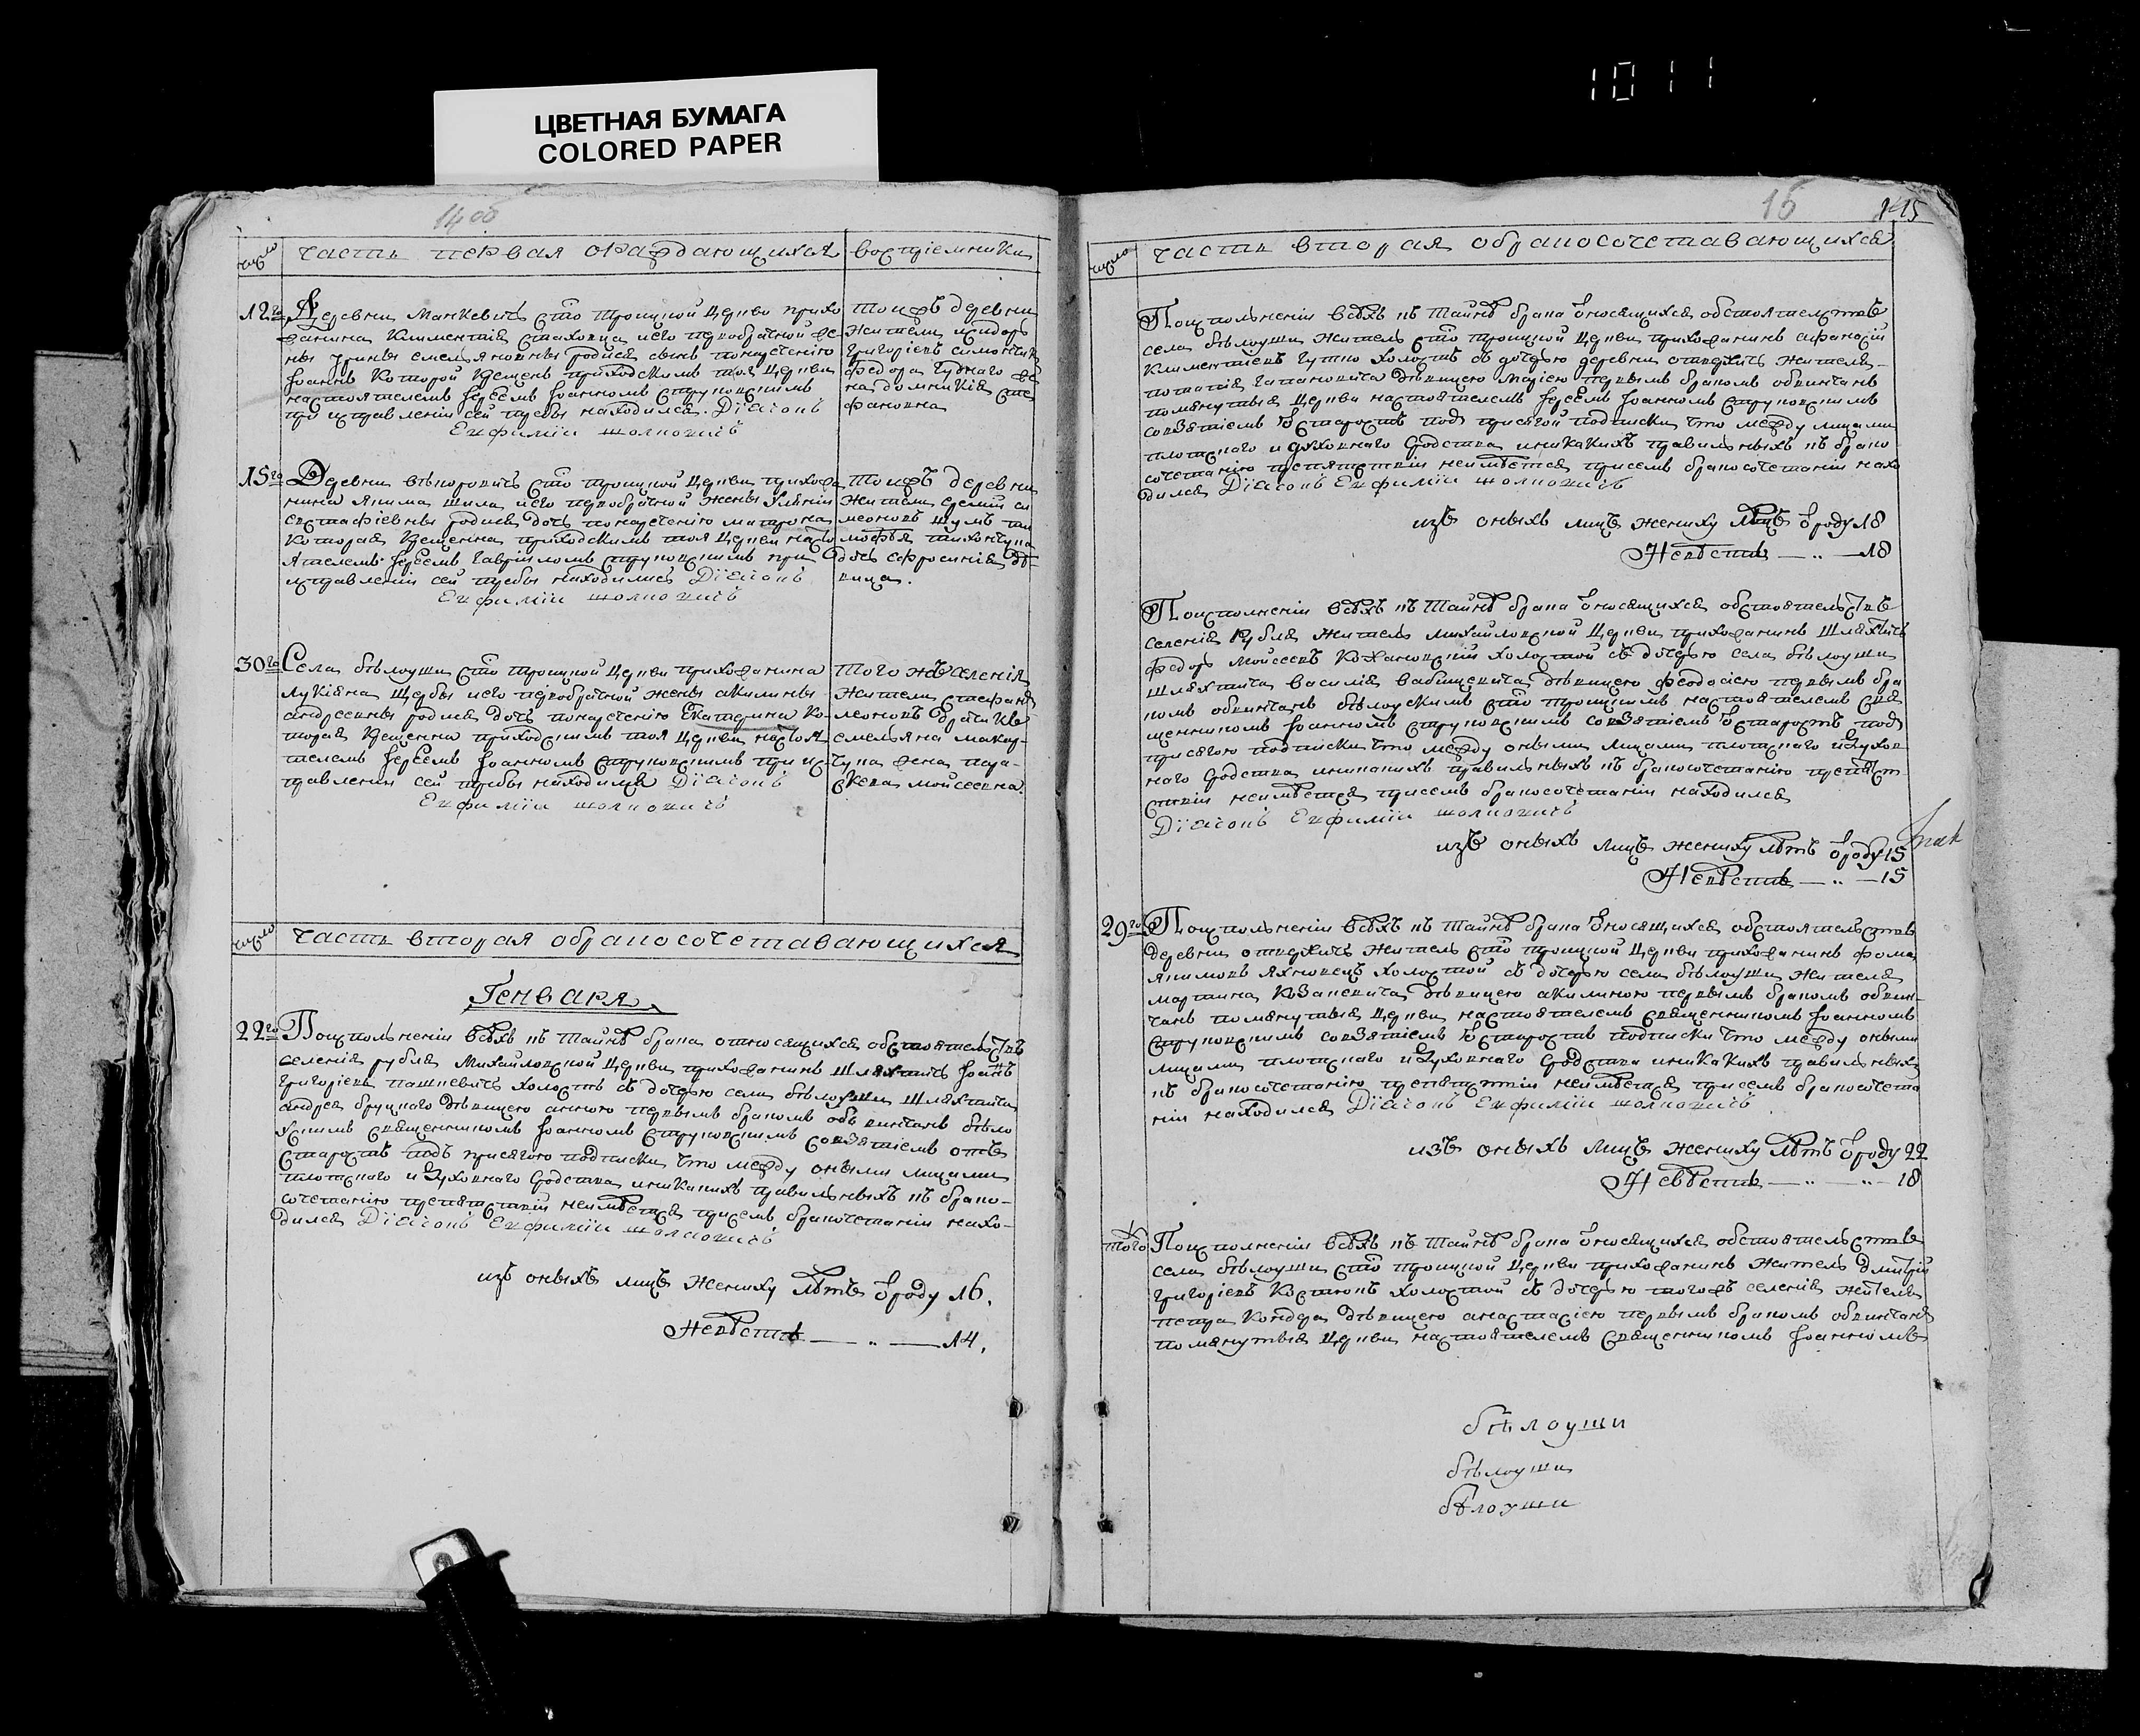 ЦВЕТНАЯ БУМАГА
COLORED PAPER
1011
14 об
число часть первая ораждающихся воспріемники
12го Деревни Манкевичъ сто троицкой Церкви прихо
жанина Климентія его первобрачной же-
ны родися сынъ понаречению
Іоаннъ которой крещенъ приходскимъ тоя Церкви
настоятелемъ Іереемъ Іоанномъ Струковскимъ
при исправленіи сей требы находился Діаконъ
Евфимій
тоижъ деревни
жители
Григоріевъ
Федора
фановна
15го Деревни сто троицкой Церкви прихожа
нина Якима Шила его первобрачной жены
Евстафіевны родися дочь понаречению Матрона
которая крещенна приходскимъ тоя Церкви насто
ятелемъ Іереемъ Гавріиломъ Струковскимъ при
исправленіи сей требы находились Діаконъ
Евфимій
тоижъ деревни
жители
дочь Ефросинія дѣ-
вица.
30го Села бѣлоуши сто троицкой Церкви прихожанина
Лукіяна его первобрачной жены акилины
андреевны родися дочь понаречению Екатерина ко-
торая крещенна приходскимъ тоя Церкви настоя
телемъ Іереемъ Іоанномъ Струковскимъ при ис-
правленіи сей требы находился Діаконъ
Евфимій
того жъ селенія
жители
емельяна макар-
чука жена пара-
скева мойсеевна.
число часть вторая обракосочетавающихся
Генваря
22го Поисполненіи всѣхъ къ тайнѣ брака относящихся обстоятельствъ
селенія рубля Михайловской Церкви прихожанинъ Шляхтичъ Іоанъ
Григоріевъ пашкевичъ холостъ съ дочерью села бѣлоуши Шляхтича
андрея дѣвицею анною первымъ бракомъ обвѣнчанъ бѣло
ускимъ священникомъ Іоанномъ Струковскимъ совзятіемъ отъ
старостъ подъ присягою подписки что между оными лицами
плотскаго и духовнаго сродства никакихъ правильныхъ къ брако-
сочетанію препятствій неимѣется присемъ бракочетаніи нахо-
дился Діаконъ Евфимій
изъ оныхъ лицъ жениху лѣтъ отроду 16.
Невѣстѣ — „ — 14.
15 145
число часть вторая обракосочетавающихся
Поисполненіи всѣхъ къ тайнѣ брака относящихся обстоятельствъ
села бѣлоуши житель сто троицкой Церкви прихожанинъ афанасій
Климентіевъ холостъ съ дочерью деревни отвержичъ жителя
потапія дѣвицею Маріею первымъ бракомъ обвѣнчанъ
помянутыя Церкви настоятелемъ Іереемъ Іоанномъ Струковскимъ
совзятіемъ отъ старостъ подъ присягой подписки что между лицами
плотскаго и духовнаго сродства никакихъ правильныхъ къ брако
сочетанію препятствій неимѣется присемъ бракосочетаніи нахо
дился Діаконъ Евфимій
изъ оныхъ лицъ жениху лѣтъ отроду 18
Невѣстѣ — „ — 18
Поисполненіи всѣхъ къ тайнѣ брака относящихся обстоятельствъ
селенія Рубля житель михайловской Церкви прихожанинъ Шляхтичъ
Федоръ Мойсеевъ Кохановскій холостой съ дочерью села бѣлоуши
Шляхтича василія вабищевича дѣвицею Феодосіею первымъ бра
комъ обвѣнчанъ бѣлоускимъ сто троицкимъ настоятелемъ свя
щенникомъ Іоанномъ Струковскимъ совзятіемъ отъ старостъ подъ
присягою подписки что между оными лицами плотскаго и духов
наго сродства никакихъ правильныхъ къ бракосочетанію препят
ствій неимѣется присемъ бракосочетаніи находился
Діаконъ Евфимій
изъ оныхъ лицъ жениху лѣтъ отроду 15
Невѣстѣ — „ — 15
29го Поисполненіи всѣхъ къ тайнѣ брака относящихся обстоятельствъ
деревни отвержичъ житель сто троицкой Церкви прихожанинъ фома
Якимовъ Яхновецъ холостой съ дочерью села бѣлоуши жителя
мартина Козакевича дѣвицею акилиною первымъ бракомъ обвѣн-
чанъ помянутыя Церкви настоятелемъ священникомъ Іоанномъ
Струковскимъ совзятіемъ отъ старостъ подписки что между оными
лицами плотскаго и духовнаго сродства никакихъ правильныхъ
къ бракосочетанію препятствій неимѣется присемъ бракосочета
ніи находился Діаконъ Евфимій
изъ оныхъ лицъ жениху лѣтъ отроду 22
Невѣстѣ — „ — „ — 18
того Поисполненіи всѣхъ къ тайнѣ брака относящихся обстоятельствъ
села бѣлоуши сто троицкой Церкви прихожанинъ житель дмитрій
Григоріевъ холостой съ дочерью тогожъ селенія жителя
петра дѣвицею анастасіею первымъ бракомъ обвѣнчанъ
помянутыя Церкви настоятелемъ священникомъ Іоанномъ
бѣлоуши
бѣлоуши
бѣлоуши